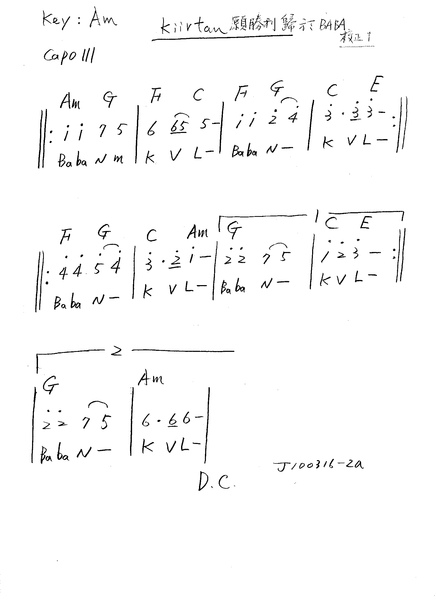 Key: Am
Kiirtan 願勝利歸於BABA
校正1
Capo III
Am G F C F G C E
||: i i 7 5 | 6 65 5 - | i i 2 4 | 3 . 3 3 - :||
Baba N m K V L - Baba N - K V L -
F G C Am G 1 C E
||: 4 4 5 4 | 3 . 2 i - | 2 2 7 5 | 1 2 3 - :||
Baba N - K V L - Baba N - K V L -
2
G Am
| 2 2 7 5 | 6 . 6 6 - |
Baba N - K V L -
D.C.
J100316-2a